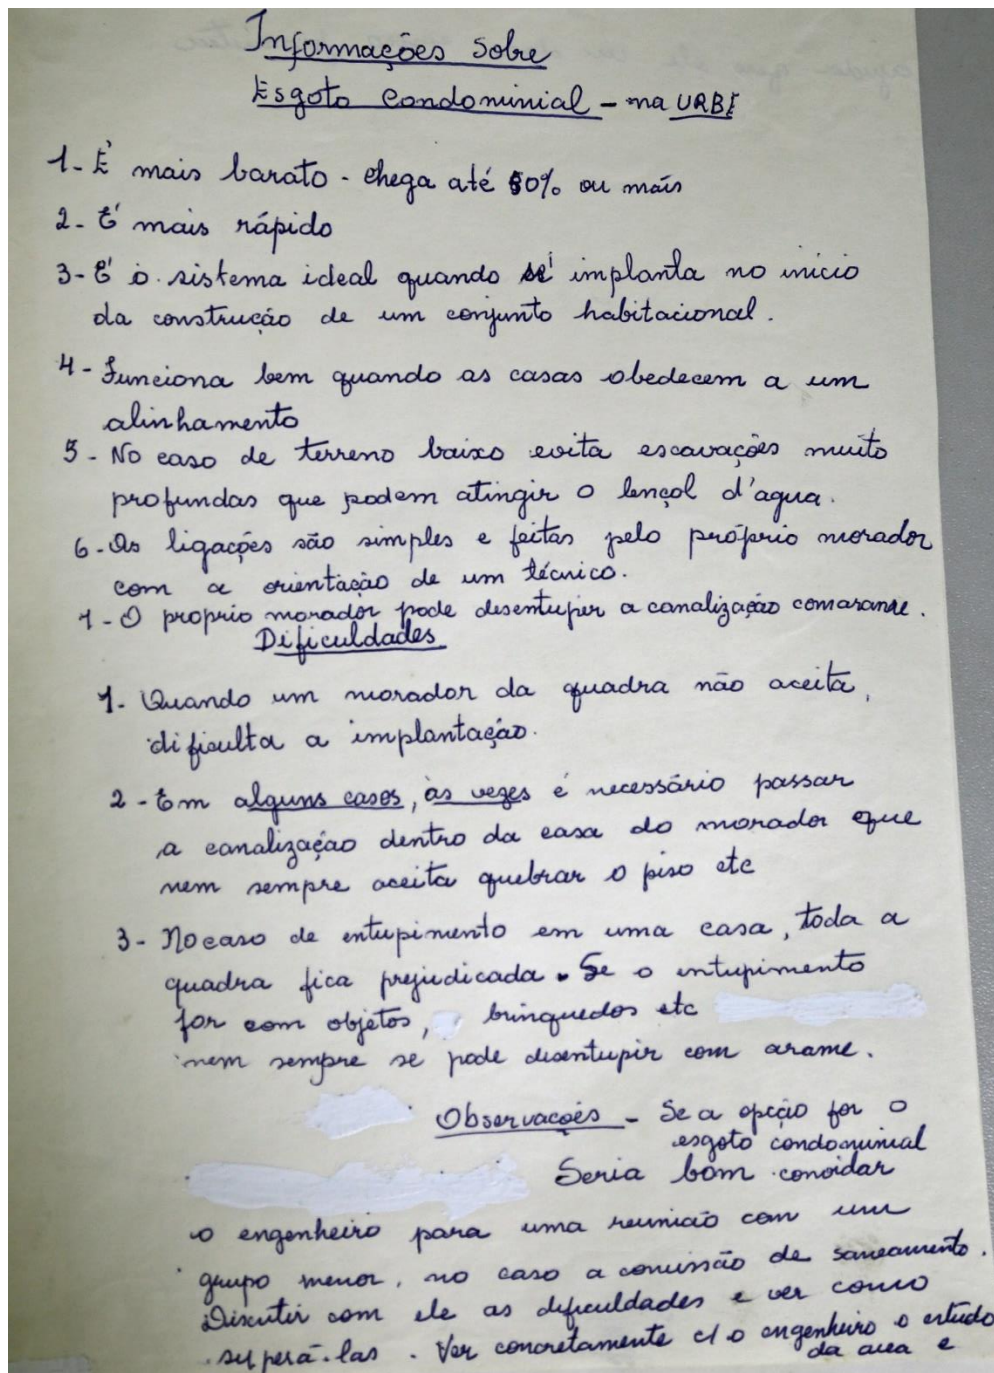 Informações Sobre
Esgoto Condominial - na URBE
1- É mais barato - chega até 50% ou mais
2- É mais rápido
3- É o sistema ideal quando se implanta no inicio
da construção de um conjunto habitacional.
4- Funciona bem quando as casas obedecem a um
alinhamento
5- No caso de terreno baixo evita escavações muito
profundas que podem atingir o lençol d'agua.
6- As ligações são simples e feitas pelo próprio morador
com a orientação de um técnico.
7- O proprio morador pode desentupir a canalização com arame.
Dificuldades
1- Quando um morador da quadra não aceita,
dificulta a implantação.
2- Em alguns casos, às vezes é necessário passar
a canalização dentro da casa do morador que
nem sempre aceita quebrar o piso etc
3- No caso de entupimento em uma casa, toda a
quadra fica prejudicada. Se o entupimento
for com objetos, brinquedos etc
nem sempre se pode desentupir com arame.
Observações - Se a opção for o
esgoto condominial
Seria bom convidar
o engenheiro para uma reunião com um
grupo menor, no caso a comissão de saneamento.
Discutir com ele as dificuldades e ver como
superá-las. Ver concretamente c/ o engenheiro o estudo
da area e